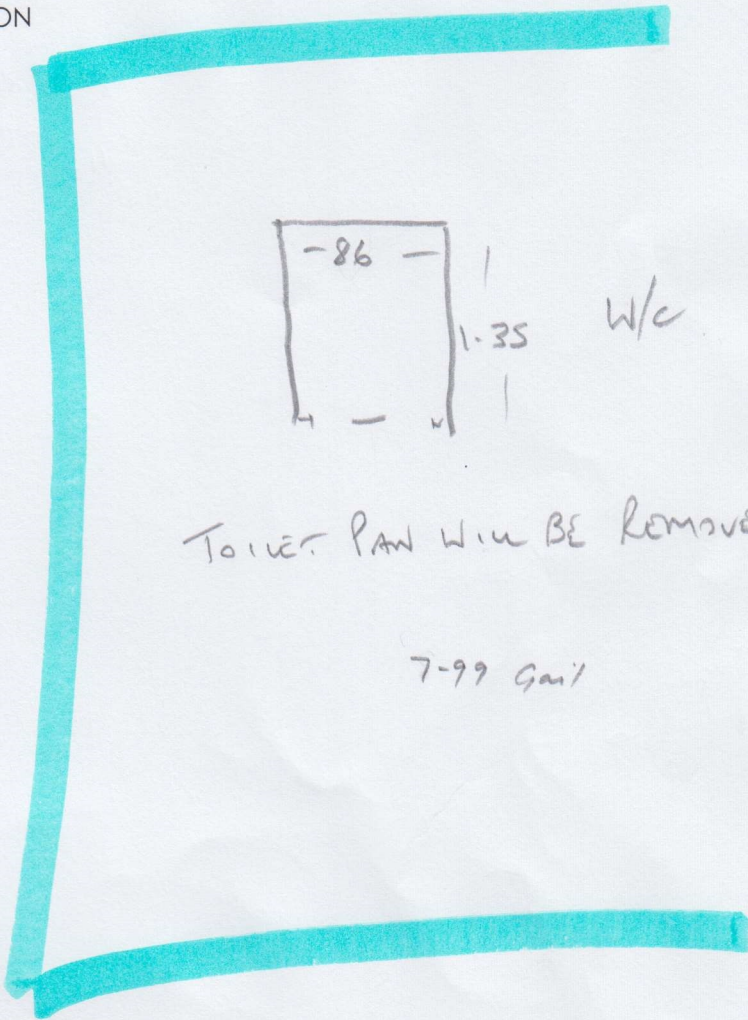 ON
-86 -
1.35
W/C
TOILET PAN WILL BE REMOVE
7-99 Gail